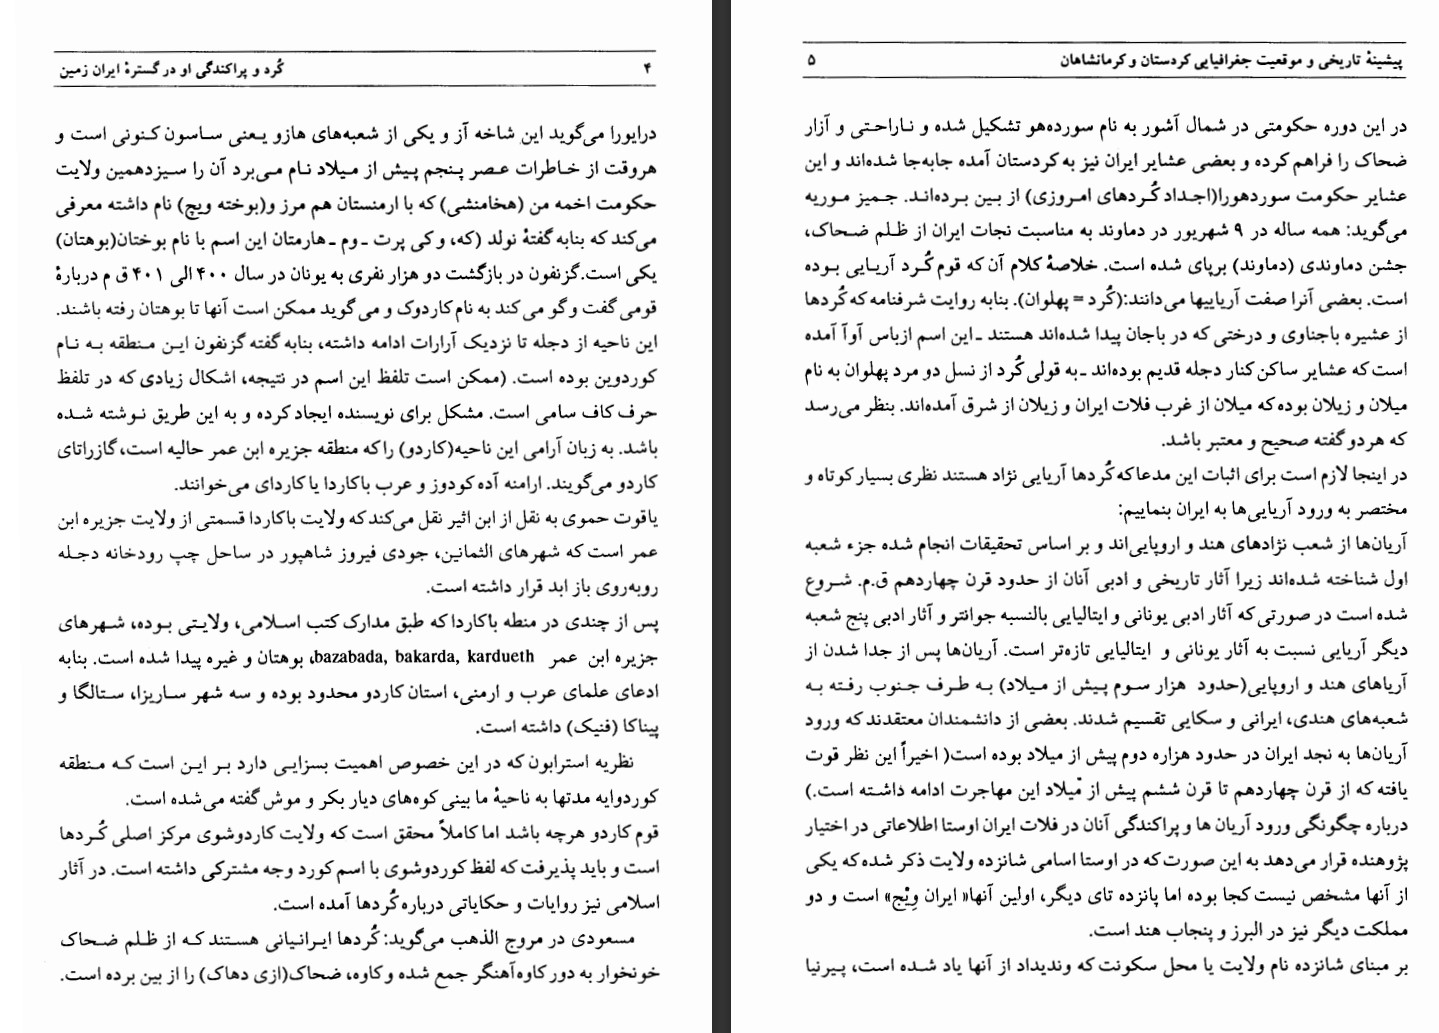 ۴ کُرد و پراکندگی او در گسترهٔ ایران زمین
درایورا می‌گوید این شاخه آز و یکی از شعبه‌های هازو یـعنی سـاسون کـنونی است و
هروقت از خـاطرات عـصر پـنجم پـیش از مـیلاد نـام مـی‌برد آن را سـیزدهمین ولایت
حکومت اخمه من (هخامنشی) که با ارمنستان هم مرز و(بوخته ویچ) نام داشته معرفی
می‌کند که بنابه گفتهٔ نولد (که، و کی پرت ـ وم ـ هارمتان این اسم با نام بوختان(بوهتان)
یکی است.گزنفون در بازگشت دو هزار نفری به یونان در سال ۴۰۰ الی ۴۰۱ ق م دربارهٔ
قومی گفت و گو می‌کند به نام کاردوک و می‌گوید ممکن است آنها تا بوهتان رفته باشند.
این ناحیه از دجله تا نزدیک آرارات ادامه داشته، بنابه گفته گزنفون ایـن مـنطقه بـه نـام
کوردوین بوده است. (ممکن است تلفظ این اسم در نتیجه، اشکال زیادی که در تلفظ
حرف کاف سامی است. مشکل برای نویسنده ایجاد کرده و به این طریق نـوشته شـده
باشد. به زبان آرامی این ناحیه(کاردو) را که منطقه جزیره ابن عمر حالیه است، گازراتای
کاردو می‌گویند. ارامنه آده کودوز و عرب باکاردا یا کاردای می‌خوانند.
یاقوت حموی به نقل از ابن اثیر نقل می‌کند که ولایت باکاردا قسمتی از ولایت جزیره ابن
عمر است که شهرهای الثمانین، جودی فیروز شاهپور در ساحل چپ رودخانه دجـله
روبه‌روی باز ابد قرار داشته است.
پس از چندی در منطه باکاردا که طبق مدارک کتب اسـلامی، ولایـتی بـوده، شـهرهای
جزیره ابن عمر bazabada, bakarda, kardueth، بوهتان و غیره پیدا شده است. بنابه
ادعای علمای عرب و ارمنی، استان کاردو محدود بوده و سه شهر سـاریزا، سـتالگا و
پیناکا (فنیک) داشته است.
نظریه استرابون که در این خصوص اهمیت بسزایـی دارد بـر ایـن است کـه مـنطقه
کوردوایه مدتها به ناحیهٔ ما بینی کوه‌های دیار بکر و موش گفته می‌شده است.
قوم کاردو هرچه باشد اما کاملاً محقق است که ولایت کاردوشوی مرکز اصلی کُـردها
است و باید پذیرفت که لفظ کوردوشوی با اسم کورد وجه مشترکی داشته است. در آثار
اسلامی نیز روایات و حکایاتی درباره کُردها آمده است.
مسعودی در مروج الذهب می‌گوید: کُردها ایـرانیانی هسـتند کـه از ظـلم ضـحاک
خونخوار به دور کاوه آهنگر جمع شده و کاوه، ضحاک(ازی دهاک) را از بین برده است.
پیشینهٔ تاریخی و موقعیت جغرافیایی کردستان و کرمانشاهان ۵
در این دوره حکومتی در شمال آشور به نام سورده‌هو تشکیل شده و نـاراحـتی و آزار
ضحاک را فراهم کرده و بعضی عشایر ایران نیز به کردستان آمده جابه‌جا شده‌اند و این
عشایر حکومت سوردهورا(اجـداد کُـردهای امـروزی) از بـین بـرده‌انـد. جـمیز مـوریه
می‌گوید: همه ساله در ۹ شهریور در دماوند به مناسبت نجات ایران از ظـلم ضـحاک،
جشن دماوندی (دماوند) برپای شده است. خلاصهٔ کلام آن که قوم کُـرد آریـایی بـوده
است. بعضی آنرا صفت آریاییها می‌دانند:(کُرد = پهلوان). بنابه روایت شرفنامه که کُردها
از عشیره باجناوی و درختی که در باجان پیدا شده‌اند هستند ـ این اسم ازباس آوآ آمده
است که عشایر ساکن کنار دجله قدیم بوده‌اند ـ به قولی کُرد از نسل دو مرد پهلوان به نام
میلان و زیلان بوده که میلان از غرب فلات ایران و زیلان از شرق آمده‌اند. بنظر می‌رسد
که هر دو گفته صحیح و معتبر باشد.
در اینجا لازم است برای اثبات این مدعا که کُردها آریایی نژاد هستند نظری بسیار کوتاه و
مختصر به ورود آریایی‌ها به ایران بنماییم:
آریان‌ها از شعب نژادهای هند و اروپایی‌اند و بر اساس تحقیقات انجام شده جزء شعبه
اول شناخته شده‌اند زیرا آثار تاریخی و ادبی آنان از حدود قرن چهاردهم ق.م. شـروع
شده است در صورتی که آثار ادبی یونانی و ایتالیایی بالنسبه جوانتر و آثار ادبی پنج شعبه
دیگر آریایی نسبت به آثار یونانی و ایتالیایی تازه‌تر است. آریان‌ها پس از جدا شدن از
آریاهای هند و اروپایی(حدود هزار سـوم پـیش از مـیلاد) بـه طـرف جـنوب رفـته بـه
شعبه‌های هندی، ایرانی و سکایی تقسیم شدند. بعضی از دانشمندان معتقدند که ورود
آریان‌ها به نجد ایران در حدود هزاره دوم پیش از میلاد بوده است( اخیراً این نظر قوت
یافته که از قرن چهاردهم تا قرن ششم پیش از میلاد این مهاجرت ادامه داشـته است.)
درباره چگونگی ورود آریان ها و پراکندگی آنان در فلات ایران اوستا اطلاعاتی در اختیار
پژوهنده قرار می‌دهد به این صورت که در اوستا اسامی شانزده ولایت ذکر شده که یکی
از آنها مشخص نیست کجا بوده اما پانزده تای دیگر، اولین آنها« ایران وِیْج» است و دو
مملکت دیگر نیز در البرز و پنجاب هند است.
بر مبنای شانزده نام ولایت یا محل سکونت که وندیداد از آنها یاد شـده است، پـیرنیا